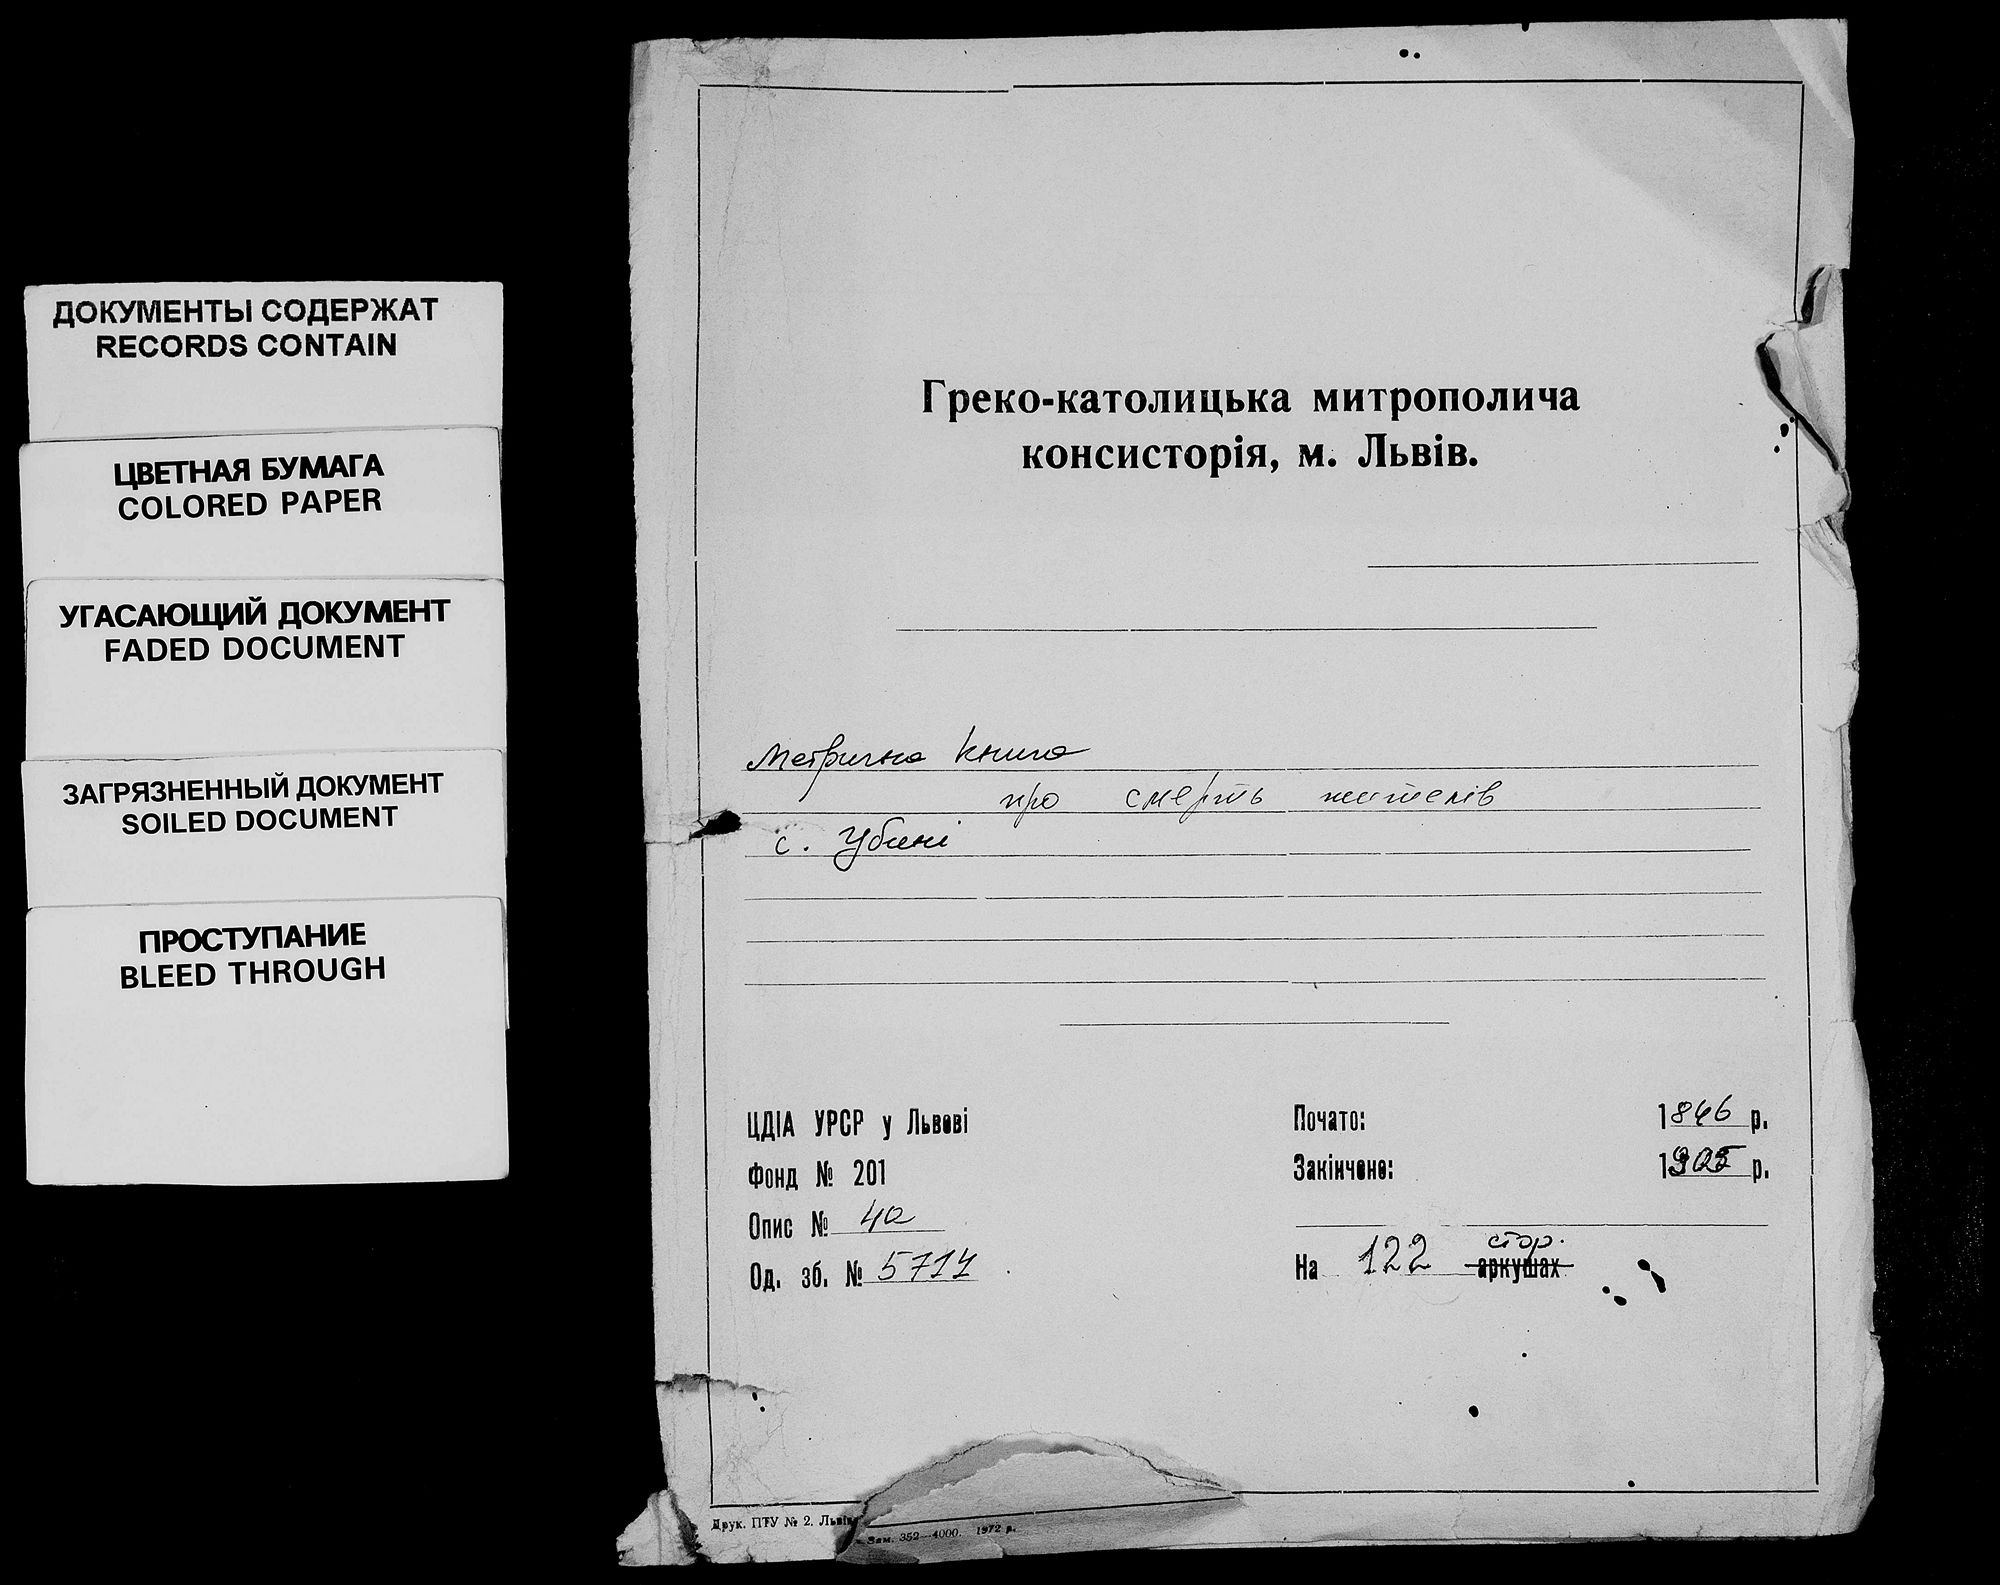 ДОКУМЕНТЫ СОДЕРЖАТ
RECORDS CONTAIN
ЦВЕТНАЯ БУМАГА
COLORED PAPER
УГАСАЮЩИЙ ДОКУМЕНТ
FADED DOCUMENT
ЗАГРЯЗНЕННЫЙ ДОКУМЕНТ
SOILED DOCUMENT
ПРОСТУПАНИЕ
BLEED THROUGH
Греко-католицька митрополича
консисторія, м. Львів.
Метрична книга
про смерть жителів
с. Убині
ЦДІА УРСР у Львові
Фонд № 201
Опис № 4а
Од. зб. № 5714
Почато: 1846 р.
Закінчено: 1905 р.
стор.
На 122 аркушах
Друк. ПТУ № 2. Львів
Зам. 352—4000. 1972 р.